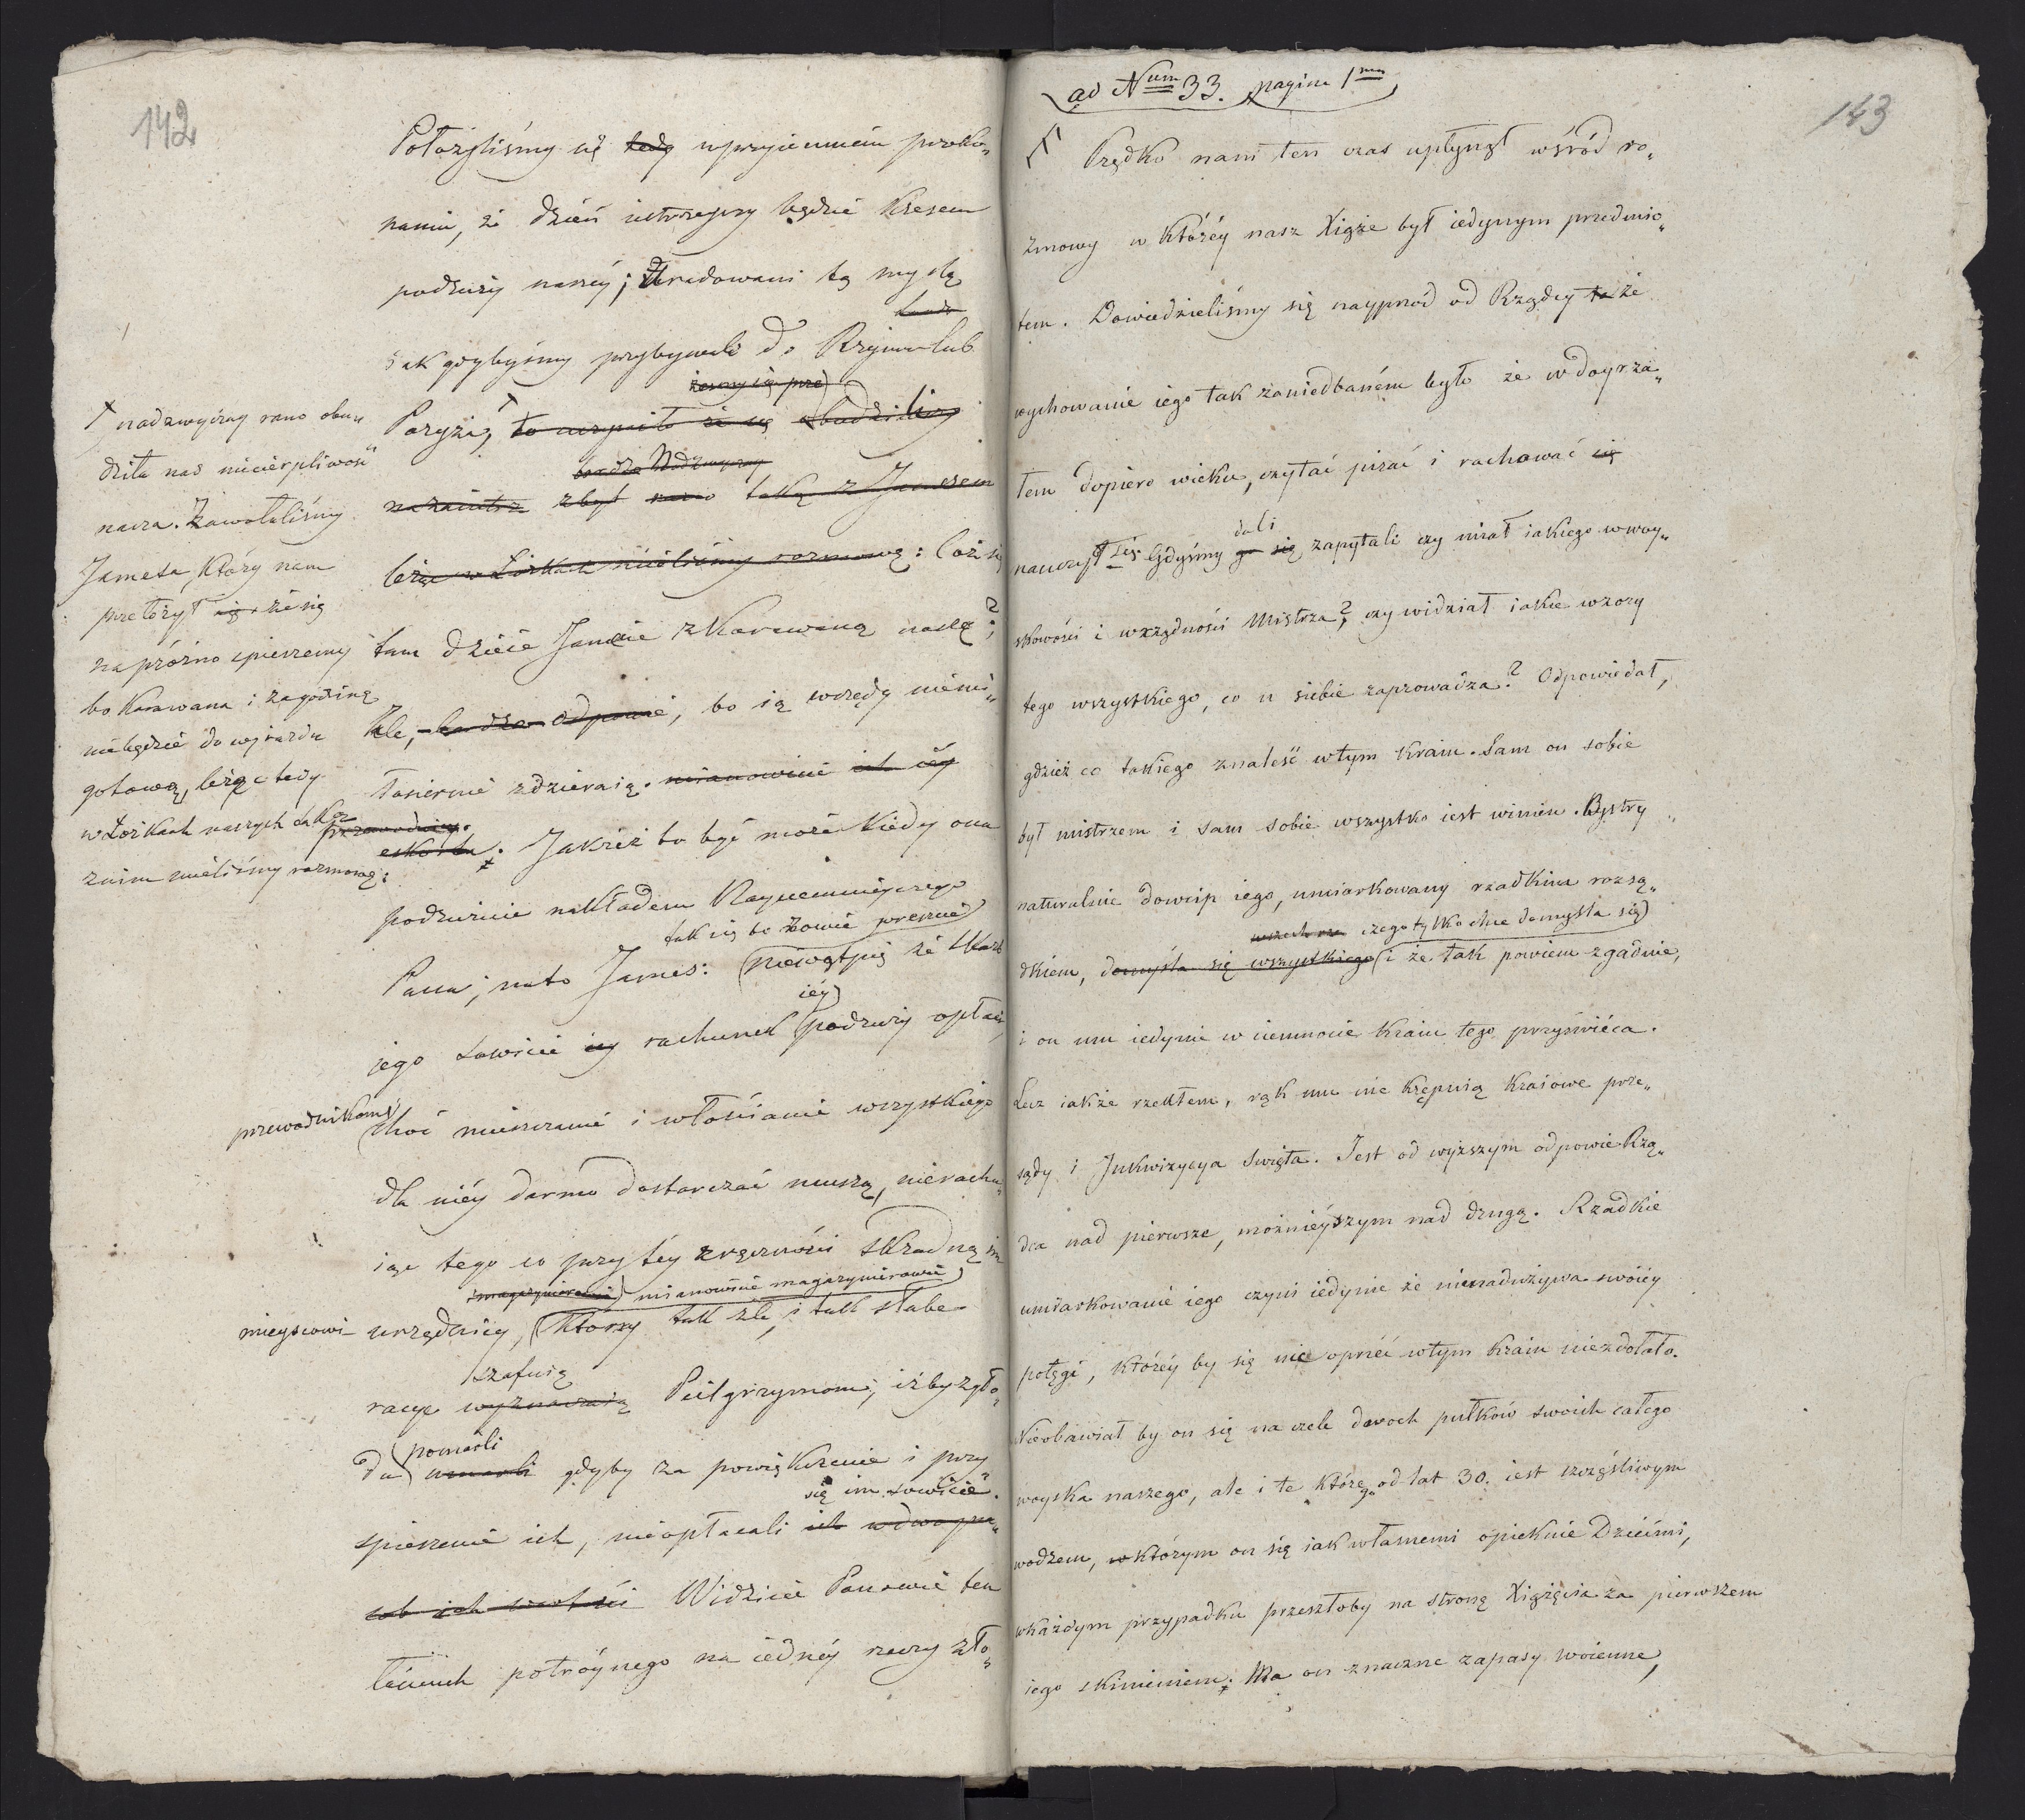 142
Położyliśmy się tedy w przyiemném przeko„
naniu, że dzień iutrzeyszy będzie kresem
podróży naszéy; Uradowani tą myślą
iak gdybyśmy przybywali do Rzymu lub
żeśmy się prze
Paryża, to uczyniło że się obudziliśmy
bardzo Nadzwyczay
nazaiutrz zbyt rano taką z Jamesem
leżąc w Łóżkach mieliśmy rozmowę: Cóż się
tam dzieie Jamesie z Karawaną naszą?
Źle, bardzo odpowie, bo ią wszędy niemi„
łosiernie zdzieraią. mianowicie
przewodnicy
eskorta. Jakże to być może kiedy ona
podróżuie nakładem Nayiemnieyszego
tak się to zowie
Pana; na to James: niewątpię że skarb
iéy
jego sowicie rachunek podróży opłaci,
choć mieszczanie i włościanie wszystkiego
dla niéy darmo dostarczać muszą, nierachu„
iąc tego co przy téy zręczności skradną im
mianowicie magazynierowie
urzędnicy, którzy tak źle, i tak słabe
szafuią
racye wyznaczaią Pielgrzymom, iżby z gło„
pomarli
du umarli gdyby za powiększenie i przy
się im sowicie.
spieszenie ich, nieopłacali
Widzicie Panowie ten
łańcuch potróynego na iednéy rzeczy zło„
nadzwyczay rano obu„
dziła nas niecierpliwość
nasza. Zawołaliśmy
Jamesa, który nam
przełożył że się
na próżno spieszemy
bo Karawana i za godzinę
niebędzie do wyiazdu
gotową, leżąc tedy
w Łóżkach naszych taką
z nim mieliśmy rozmowę:
przewodnikom
mieyscowi
ad Num 33. pagina 1ma
143
Prędko nam ten czas upłynął wśród ro„
zmowy w któréy nasz Xiąże był iedynym przedmio„
tem. Dowiedzieliśmy się nayprzód od Rządcy że
wychowanie iego tak zaniedbaném było że w doyrza„
łem dopiero wieku, czytać pisać i rachować się
dali
nauczył się. Gdyśmy go się zapytali czy miał iakiego w woy„
skowości i w rządności Mistrza? czy widział iakie wzory
tego wszystkiego, co u siebie zaprowadza? Odpowiedał,
gdzież co takiego znaleść w tym kraiu. Sam on sobie
był mistrzem i sam sobie wszystko iest winien. Bystry
naturalnie dowcip iego, umiarkowany rzadkim rozsą„
czego tylko chce domyśla się
dkiem, domyśla się wszystkiego i że tak powiem zgadnie,
i on mu iedynie w ciemnocie kraiu tego przyświéca.
Lecz iakże rzekłem, rąk mu nie krępuią kraiowe prze„
sądy i Inkwizycya Swięta. Jest od wyższym odpowie Rzą„
dca nad pierwsze, możnieyszym nad drugą. Rzadkie
umiarkowanie iego czyni iedynie że nienadużywa swoiéy
potęgi, któréy by się nic oprzéć w tym kraiu niezdołało.
Nieobawiał by on się na czele dwoch pułków swoich całego
woyska naszego, ale i te którego od lat 30. iest szczęśliwym
wodzem, w którym on się iak własnemi opiekuie Dziećmi,
w każdym przypadku przeszłoby na stronę Xiążęcia za pierwszem
iego skinieniem. Ma on znaczne zapasy woienne,